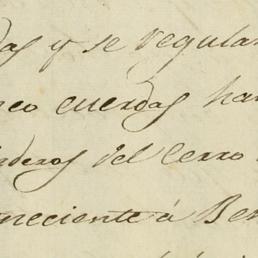 das y se regula
nco cuerdas ha
nderos del cerro
rneciente á Be